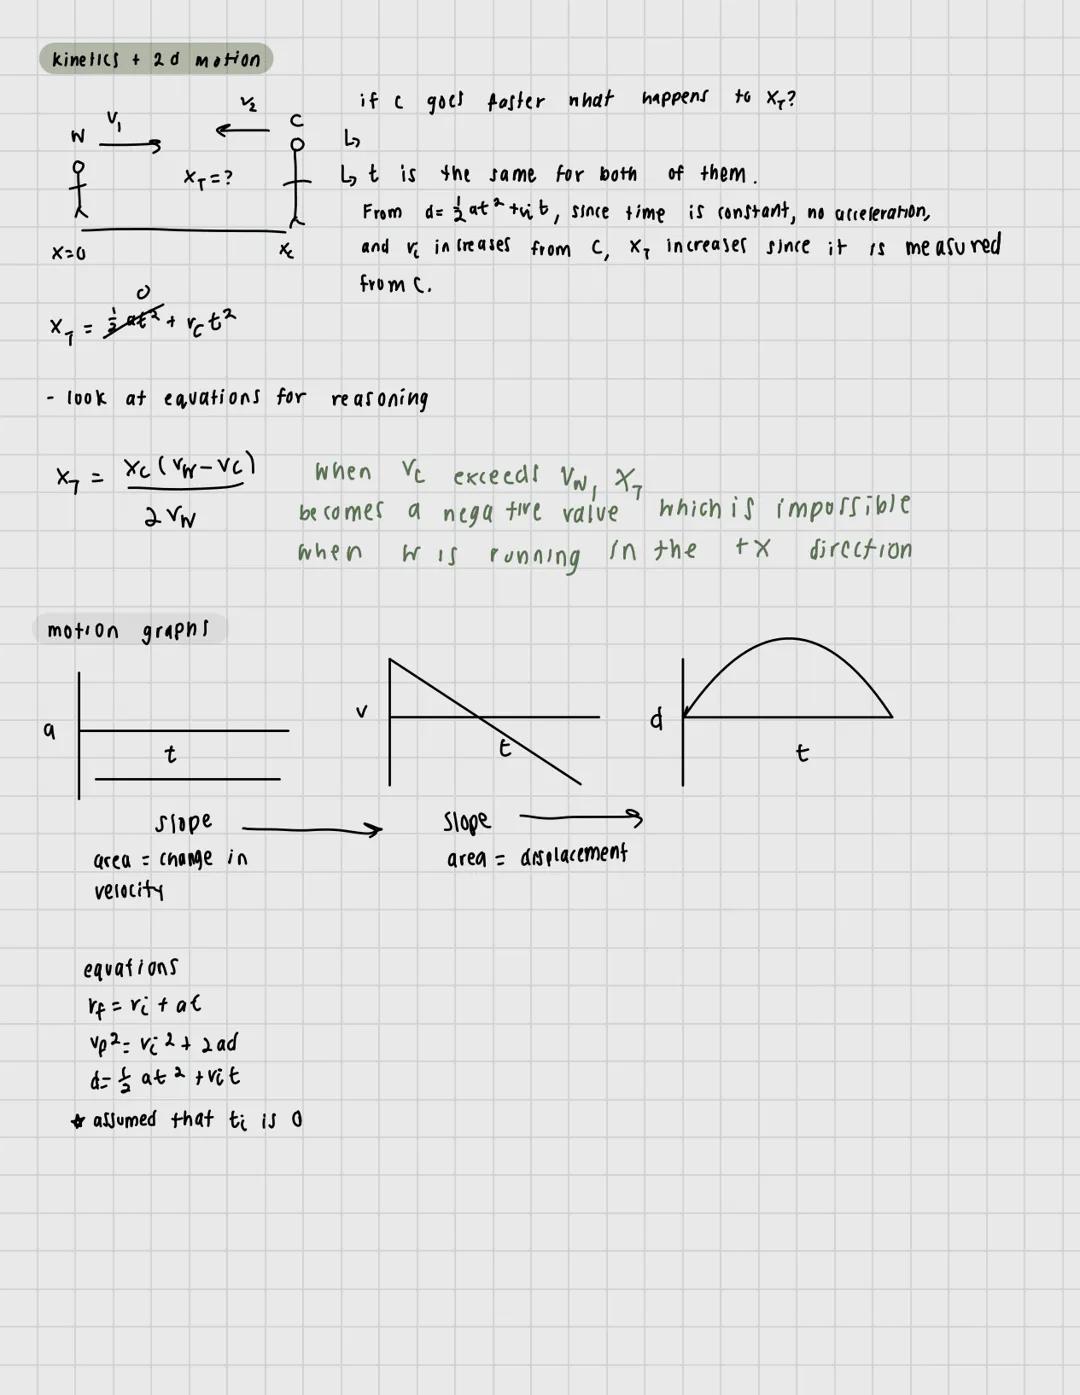 kinetics + 2d motion
if c goes faster what happens to x_T?
W V₁ V₂ C
x_T = ?
x=0 x_c
↳
↳ t is the same for both of them.
From d= ½at² + v_i t, since time is constant, no acceleration,
and v_i increases from C, x_T increases since it is measured
from C.
0
x_T = ½at² + v_c t²
- look at equations for reasoning
x_T = x_c (v_w - v_c) / 2 v_w
when v_c exceeds v_w, x_T
becomes a negative value which is impossible
when w is running in the +x direction
motion graphs
a t
v t
d t
slope → slope →
area = change in
velocity
area = displacement
equations
v_f = v_i + at
v_f² = v_i² + 2ad
d= ½ at² + v_i t
* assumed that t_i is 0